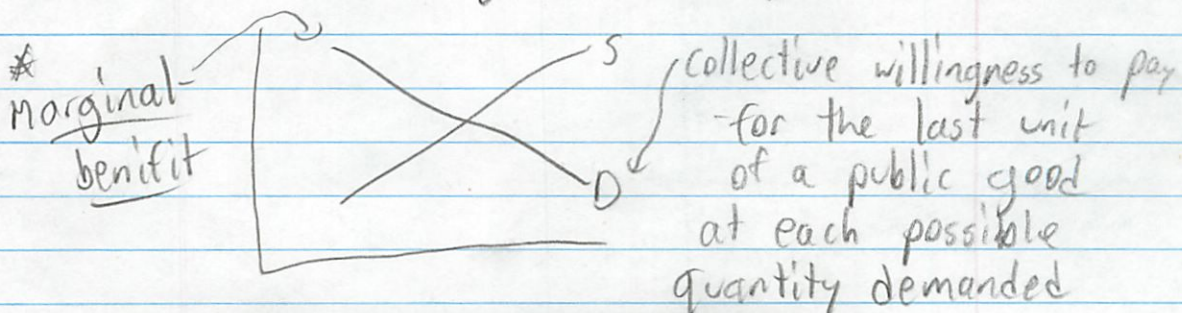 *
Marginal-
benifit
S
D
collective willingness to pay
for the last unit
of a public good
at each possible
quantity demanded